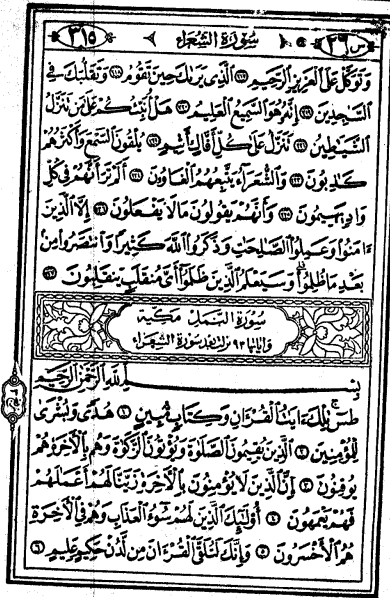 ٣١٥ سورة الشعراء س ٢٦
وَتَوَكَّلْ عَلَى الْعَزِيزِ الرَّحِيمِ ٢١٧ الَّذِي يَرَاكَ حِينَ تَقُومُ ٢١٨ وَتَقَلُّبَكَ فِي
السَّاجِدِينَ ٢١٩ إِنَّهُ هُوَ السَّمِيعُ الْعَلِيمُ ٢٢٠ هَلْ أُنَبِّئُكُمْ عَلَى مَن تَنَزَّلُ
الشَّيَاطِينُ ٢٢١ تَنَزَّلُ عَلَى كُلِّ أَفَّاكٍ أَثِيمٍ ٢٢٢ يُلْقُونَ السَّمْعَ وَأَكْثَرُهُمْ
كَاذِبُونَ ٢٢٣ وَالشُّعَرَاءُ يَتَّبِعُهُمُ الْغَاوُونَ ٢٢٤ أَلَمْ تَرَ أَنَّهُمْ فِي كُلِّ
وَادٍ يَهِيمُونَ ٢٢٥ وَأَنَّهُمْ يَقُولُونَ مَا لَا يَفْعَلُونَ ٢٢٦ إِلَّا الَّذِينَ
ءَامَنُوا وَعَمِلُوا الصَّالِحَاتِ وَذَكَرُوا اللَّهَ كَثِيرًا وَانتَصَرُوا مِن
بَعْدِ مَا ظُلِمُوا وَسَيَعْلَمُ الَّذِينَ ظَلَمُوا أَيَّ مُنقَلَبٍ يَنقَلِبُونَ ٢٢٧
سورة النمل مكية
وآياتها ٩٣ نزلت بعد سورة الشعراء
بِسْمِ اللَّهِ الرَّحْمَنِ الرَّحِيمِ
طس تِلْكَ ءَايَاتُ الْقُرْءَانِ وَكِتَابٍ مُّبِينٍ ١ هُدًى وَبُشْرَى
لِلْمُؤْمِنِينَ ٢ الَّذِينَ يُقِيمُونَ الصَّلَوٰةَ وَيُؤْتُونَ الزَّكَوٰةَ وَهُم بِالْأَخِرَةِ هُمْ
يُوقِنُونَ ٣ إِنَّ الَّذِينَ لَا يُؤْمِنُونَ بِالْأَخِرَةِ زَيَّنَّا لَهُمْ أَعْمَالَهُمْ
فَهُمْ يَعْمَهُونَ ٤ أُولَٰئِكَ الَّذِينَ لَهُمْ سُوءُ الْعَذَابِ وَهُمْ فِي الْأَخِرَةِ
هُمُ الْأَخْسَرُونَ ٥ وَإِنَّكَ لَتُلَقَّى الْقُرْءَانَ مِن لَّدُنْ حَكِيمٍ عَلِيمٍ ٦